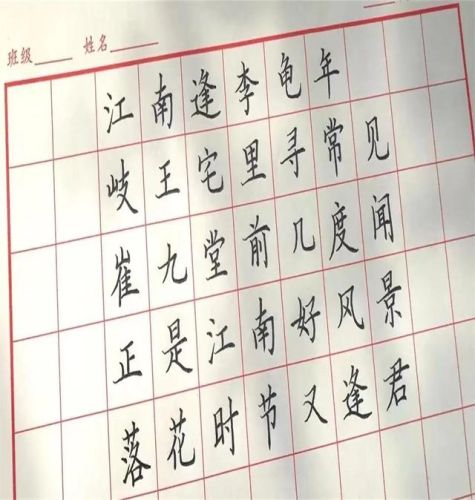 班级 姓名
江南逢李龟年
岐王宅里寻常见
崔九堂前几度闻
正是江南好风景
落花时节又逢君